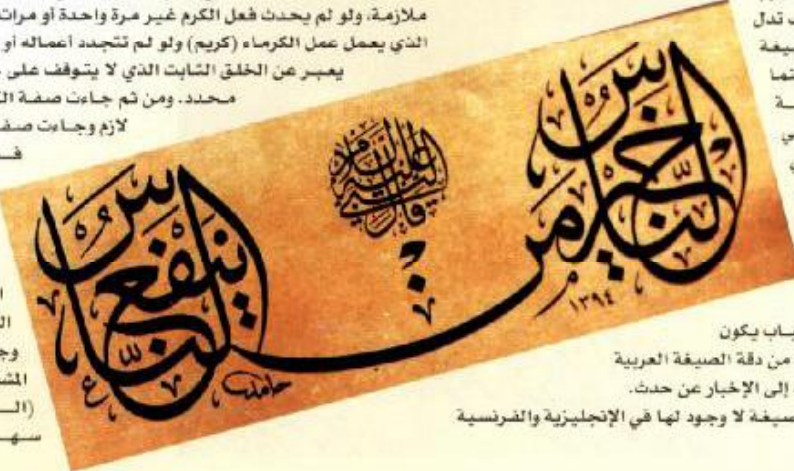 ملازمة، ولو لم يحدث فعل الكرم غير مرة واحدة أو مرات
الذي يعمل عمل الكرماء (كريم) ولو لم تتجدد أعماله أو
يعبر عن الخلق الثابت الذي لا يتوقف على
محدد. ومن ثم جاءت صفة
لازم وجاءت صف
تدل
يغة
تما
ـة
ي
قال النبي عليه السلام
خير الناس من ينفع الناس
١٣٩٤
حامد
باب يكون
من دقة الصيغة العربية
إلى الإخبار عن حدث.
صيغة لا وجود لها في الإنجليزية والفرنسية
ا
الـ
وجـ
المش
(الـ
سهـ